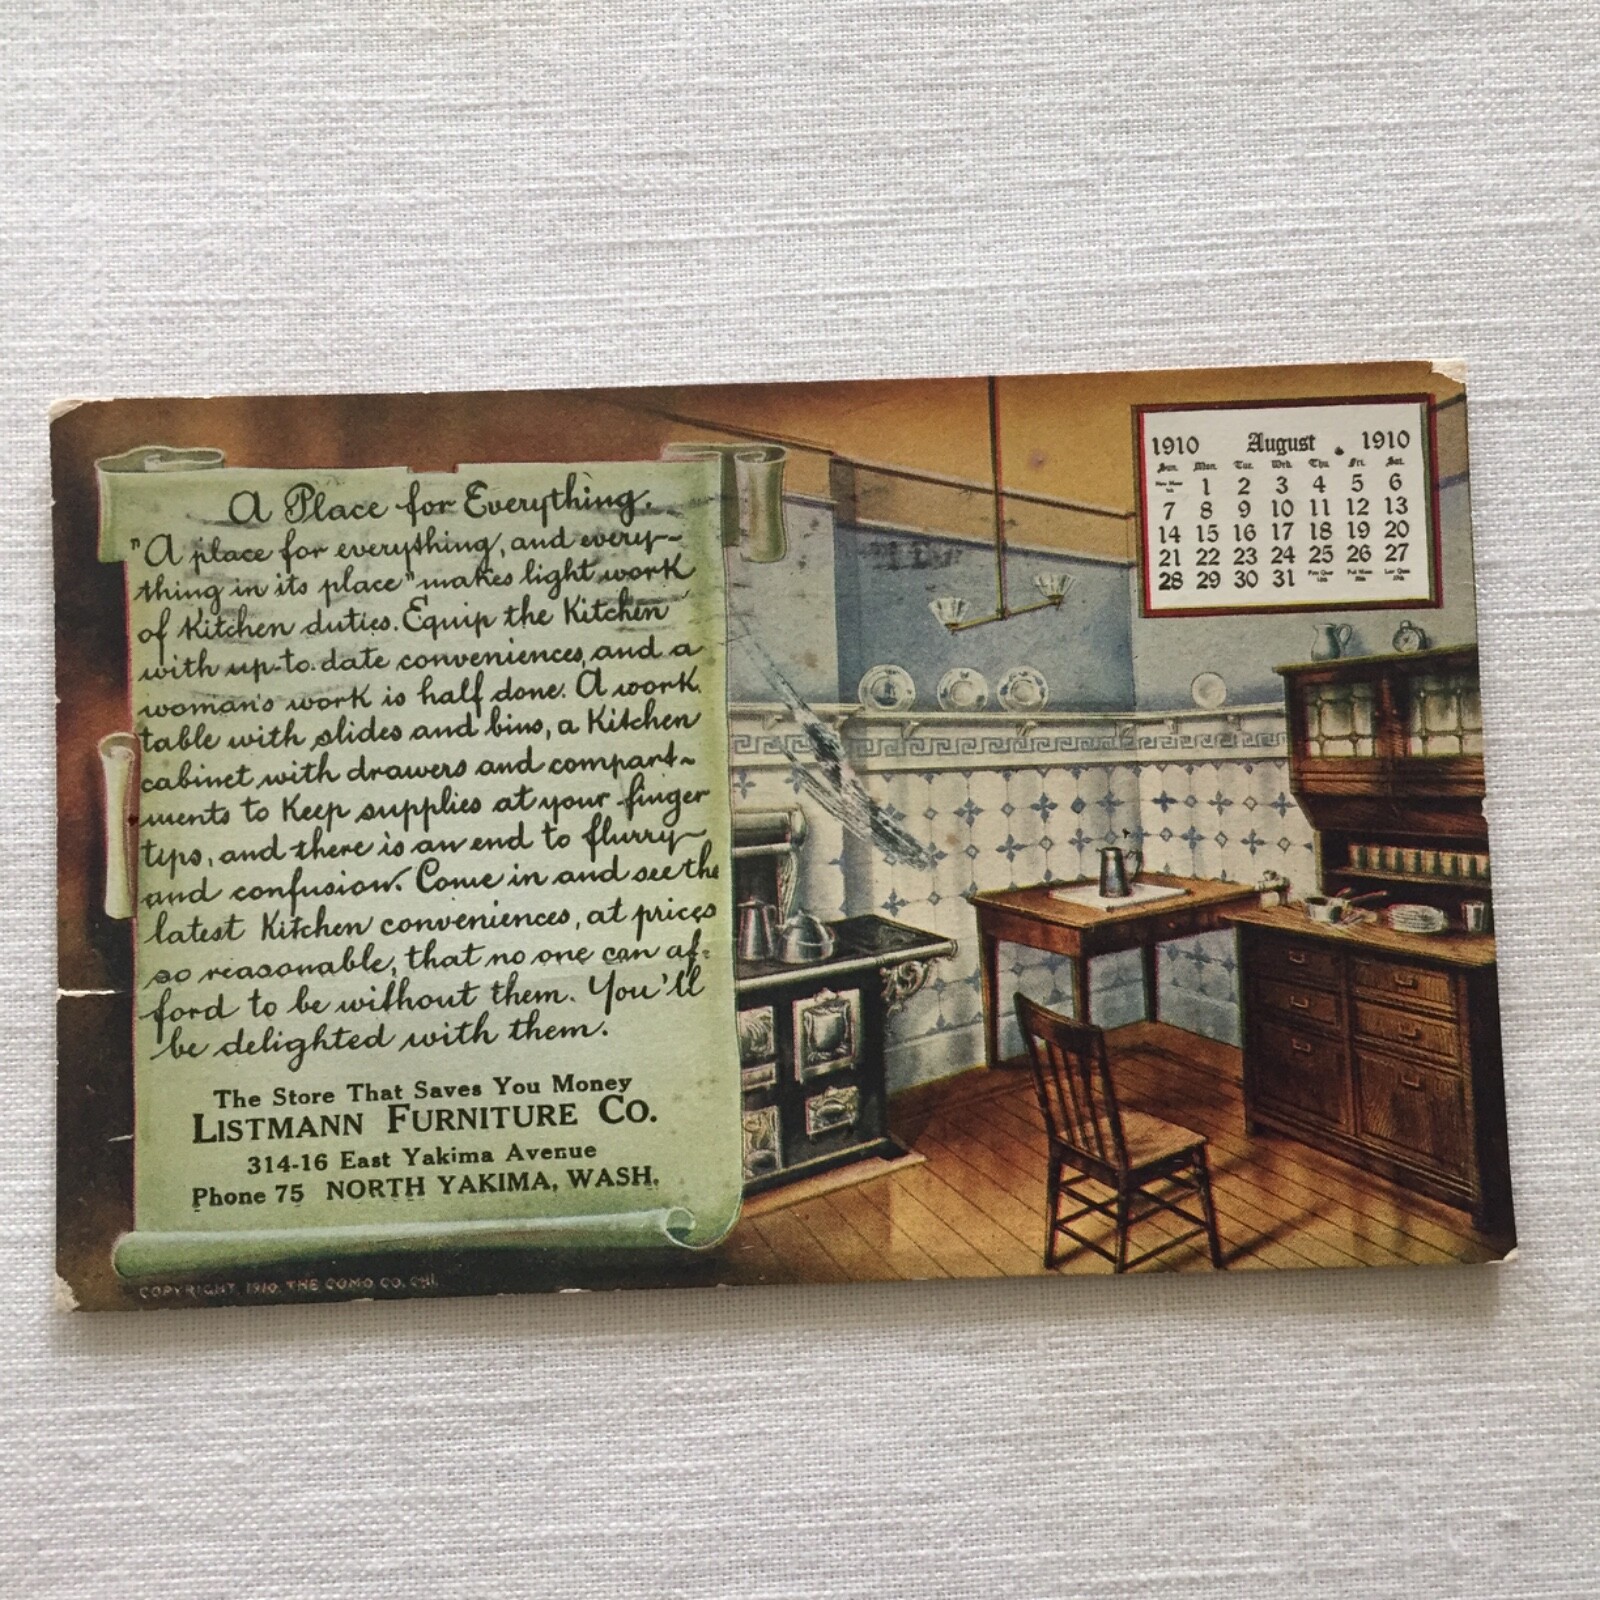 A Place for Everything.
"A place for everything, and every-
thing in its place" makes light work
of Kitchen duties. Equip the Kitchen
with up-to-date conveniences, and a
woman's work is half done. A work
table with slides and bins, a Kitchen
cabinet with drawers and compart-
ments to Keep supplies at your finger
tips, and there is an end to flurry
and confusion. Come in and see the
latest Kitchen conveniences, at prices
so reasonable, that no one can af-
ford to be without them. You'll
be delighted with them.
The Store That Saves You Money
LISTMANN FURNITURE CO.
314-16 East Yakima Avenue
Phone 75 NORTH YAKIMA, WASH.
COPYRIGHT, 1910, THE COMO CO. CHI.
1910 August 1910
Sun. Mon. Tue. Wed. Thu. Fri. Sat.
1 2 3 4 5 6
7 8 9 10 11 12 13
14 15 16 17 18 19 20
21 22 23 24 25 26 27
28 29 30 31